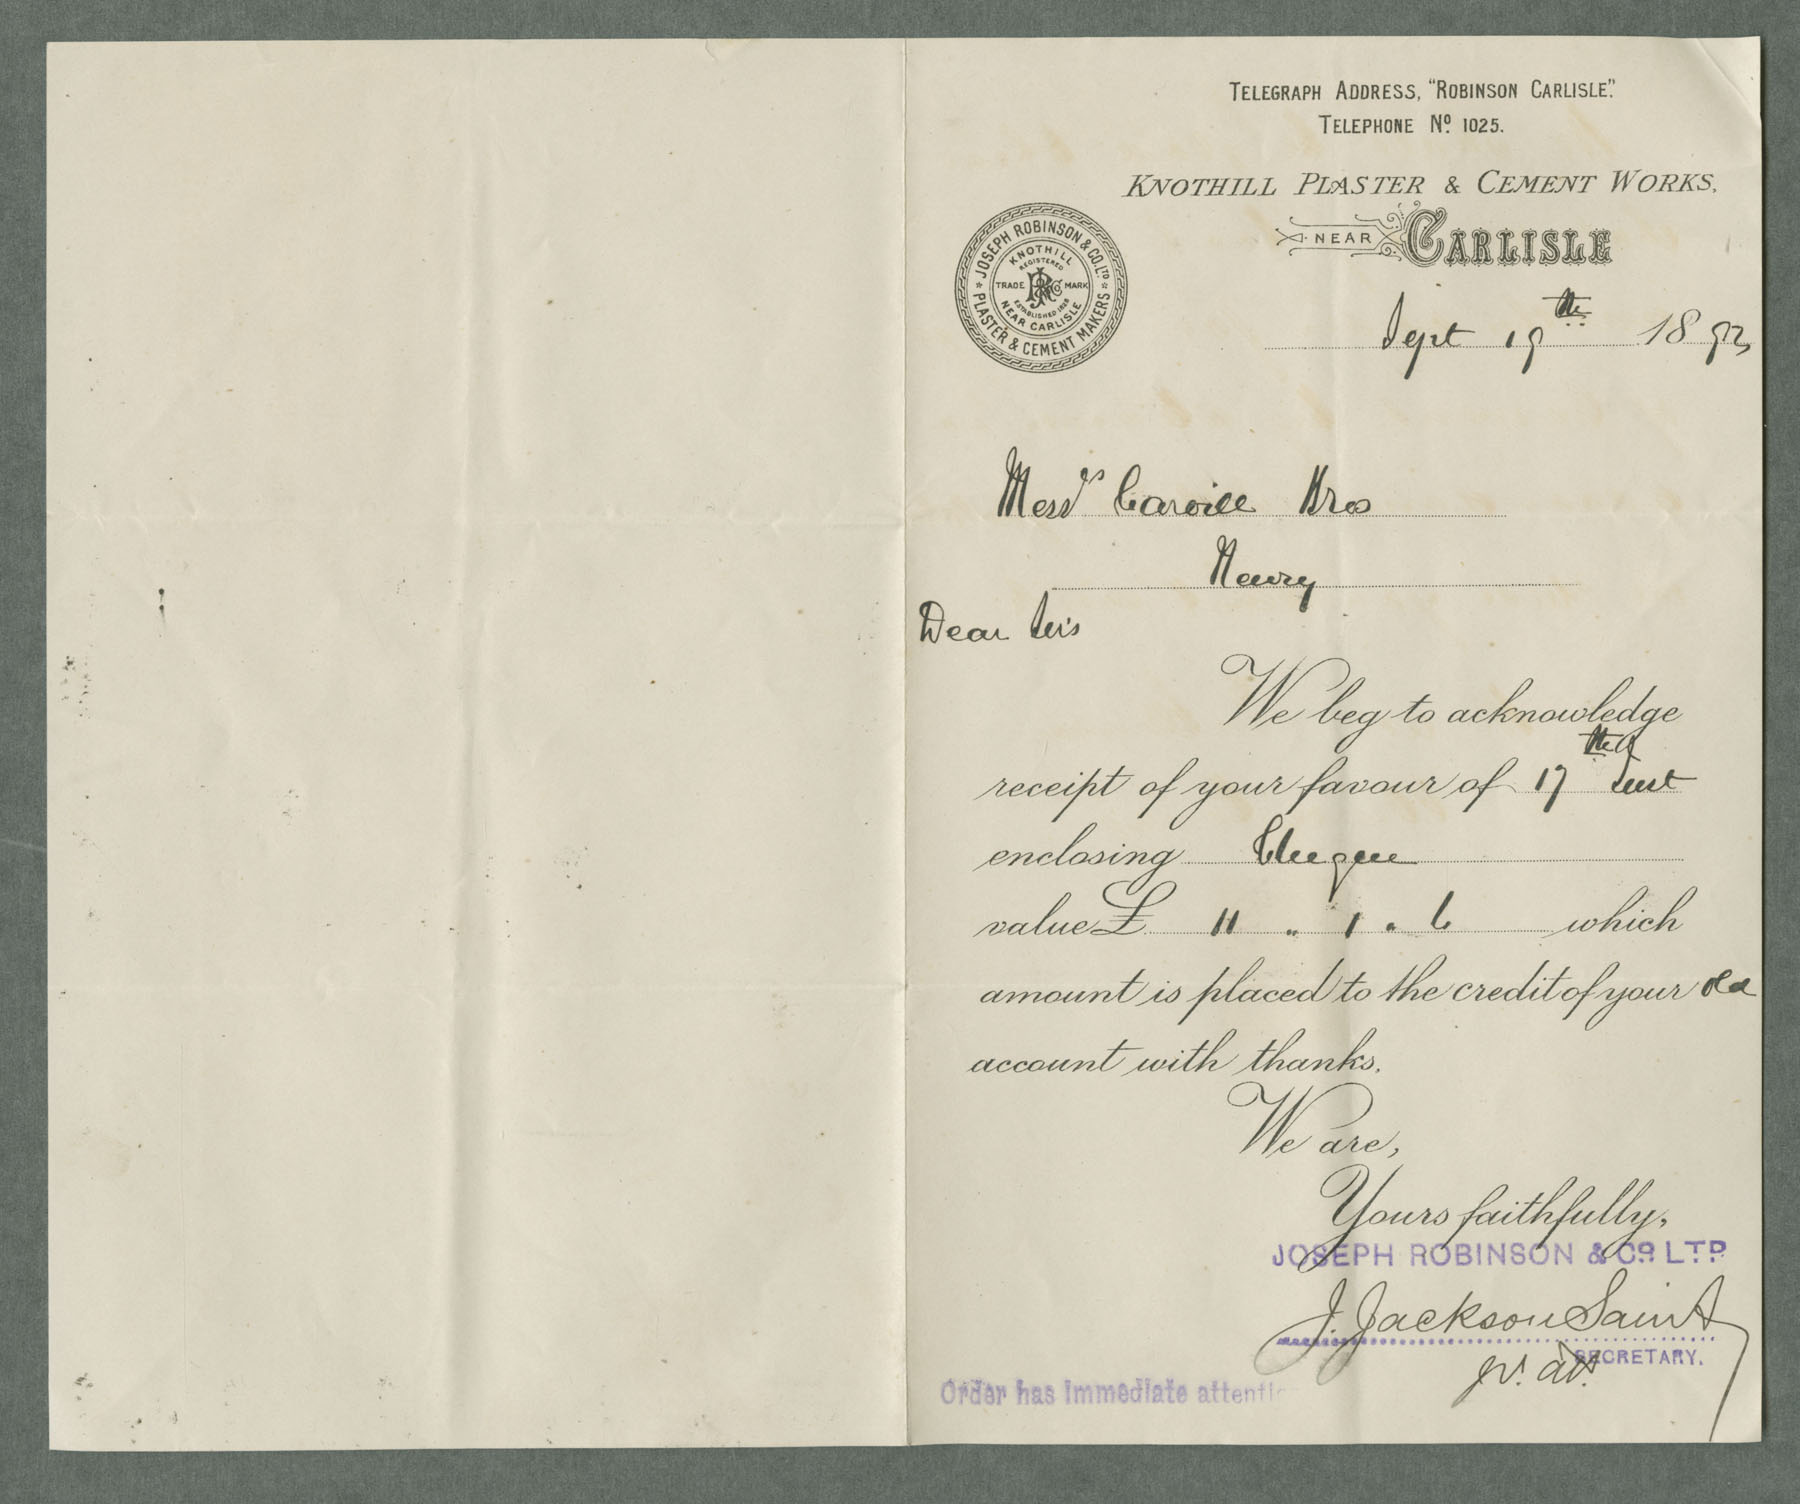 TELEGRAPH ADDRESS, "ROBINSON CARLISLE".
TELEPHONE Nº 1025.
KNOTHILL PLASTER & CEMENT WORKS,
NEAR CARLISLE
JOSEPH ROBINSON & CO. LTD
PLASTER & CEMENT MAKERS
KNOTHILL
REGISTERED
TRADE MARK
ESTABLISHED
NEAR CARLISLE
Sept 19th 1893
Messrs Carvill Bros
Newry
Dear Sirs
We beg to acknowledge
receipt of your favour of 17th Inst
enclosing Cheque
value £ 11 " 1 " 6 which
amount is placed to the credit of your old
account with thanks.
We are,
Yours faithfully,
JOSEPH ROBINSON & CO. LTD.
J. Jackson Saint
SECRETARY.
Order has immediate attentio